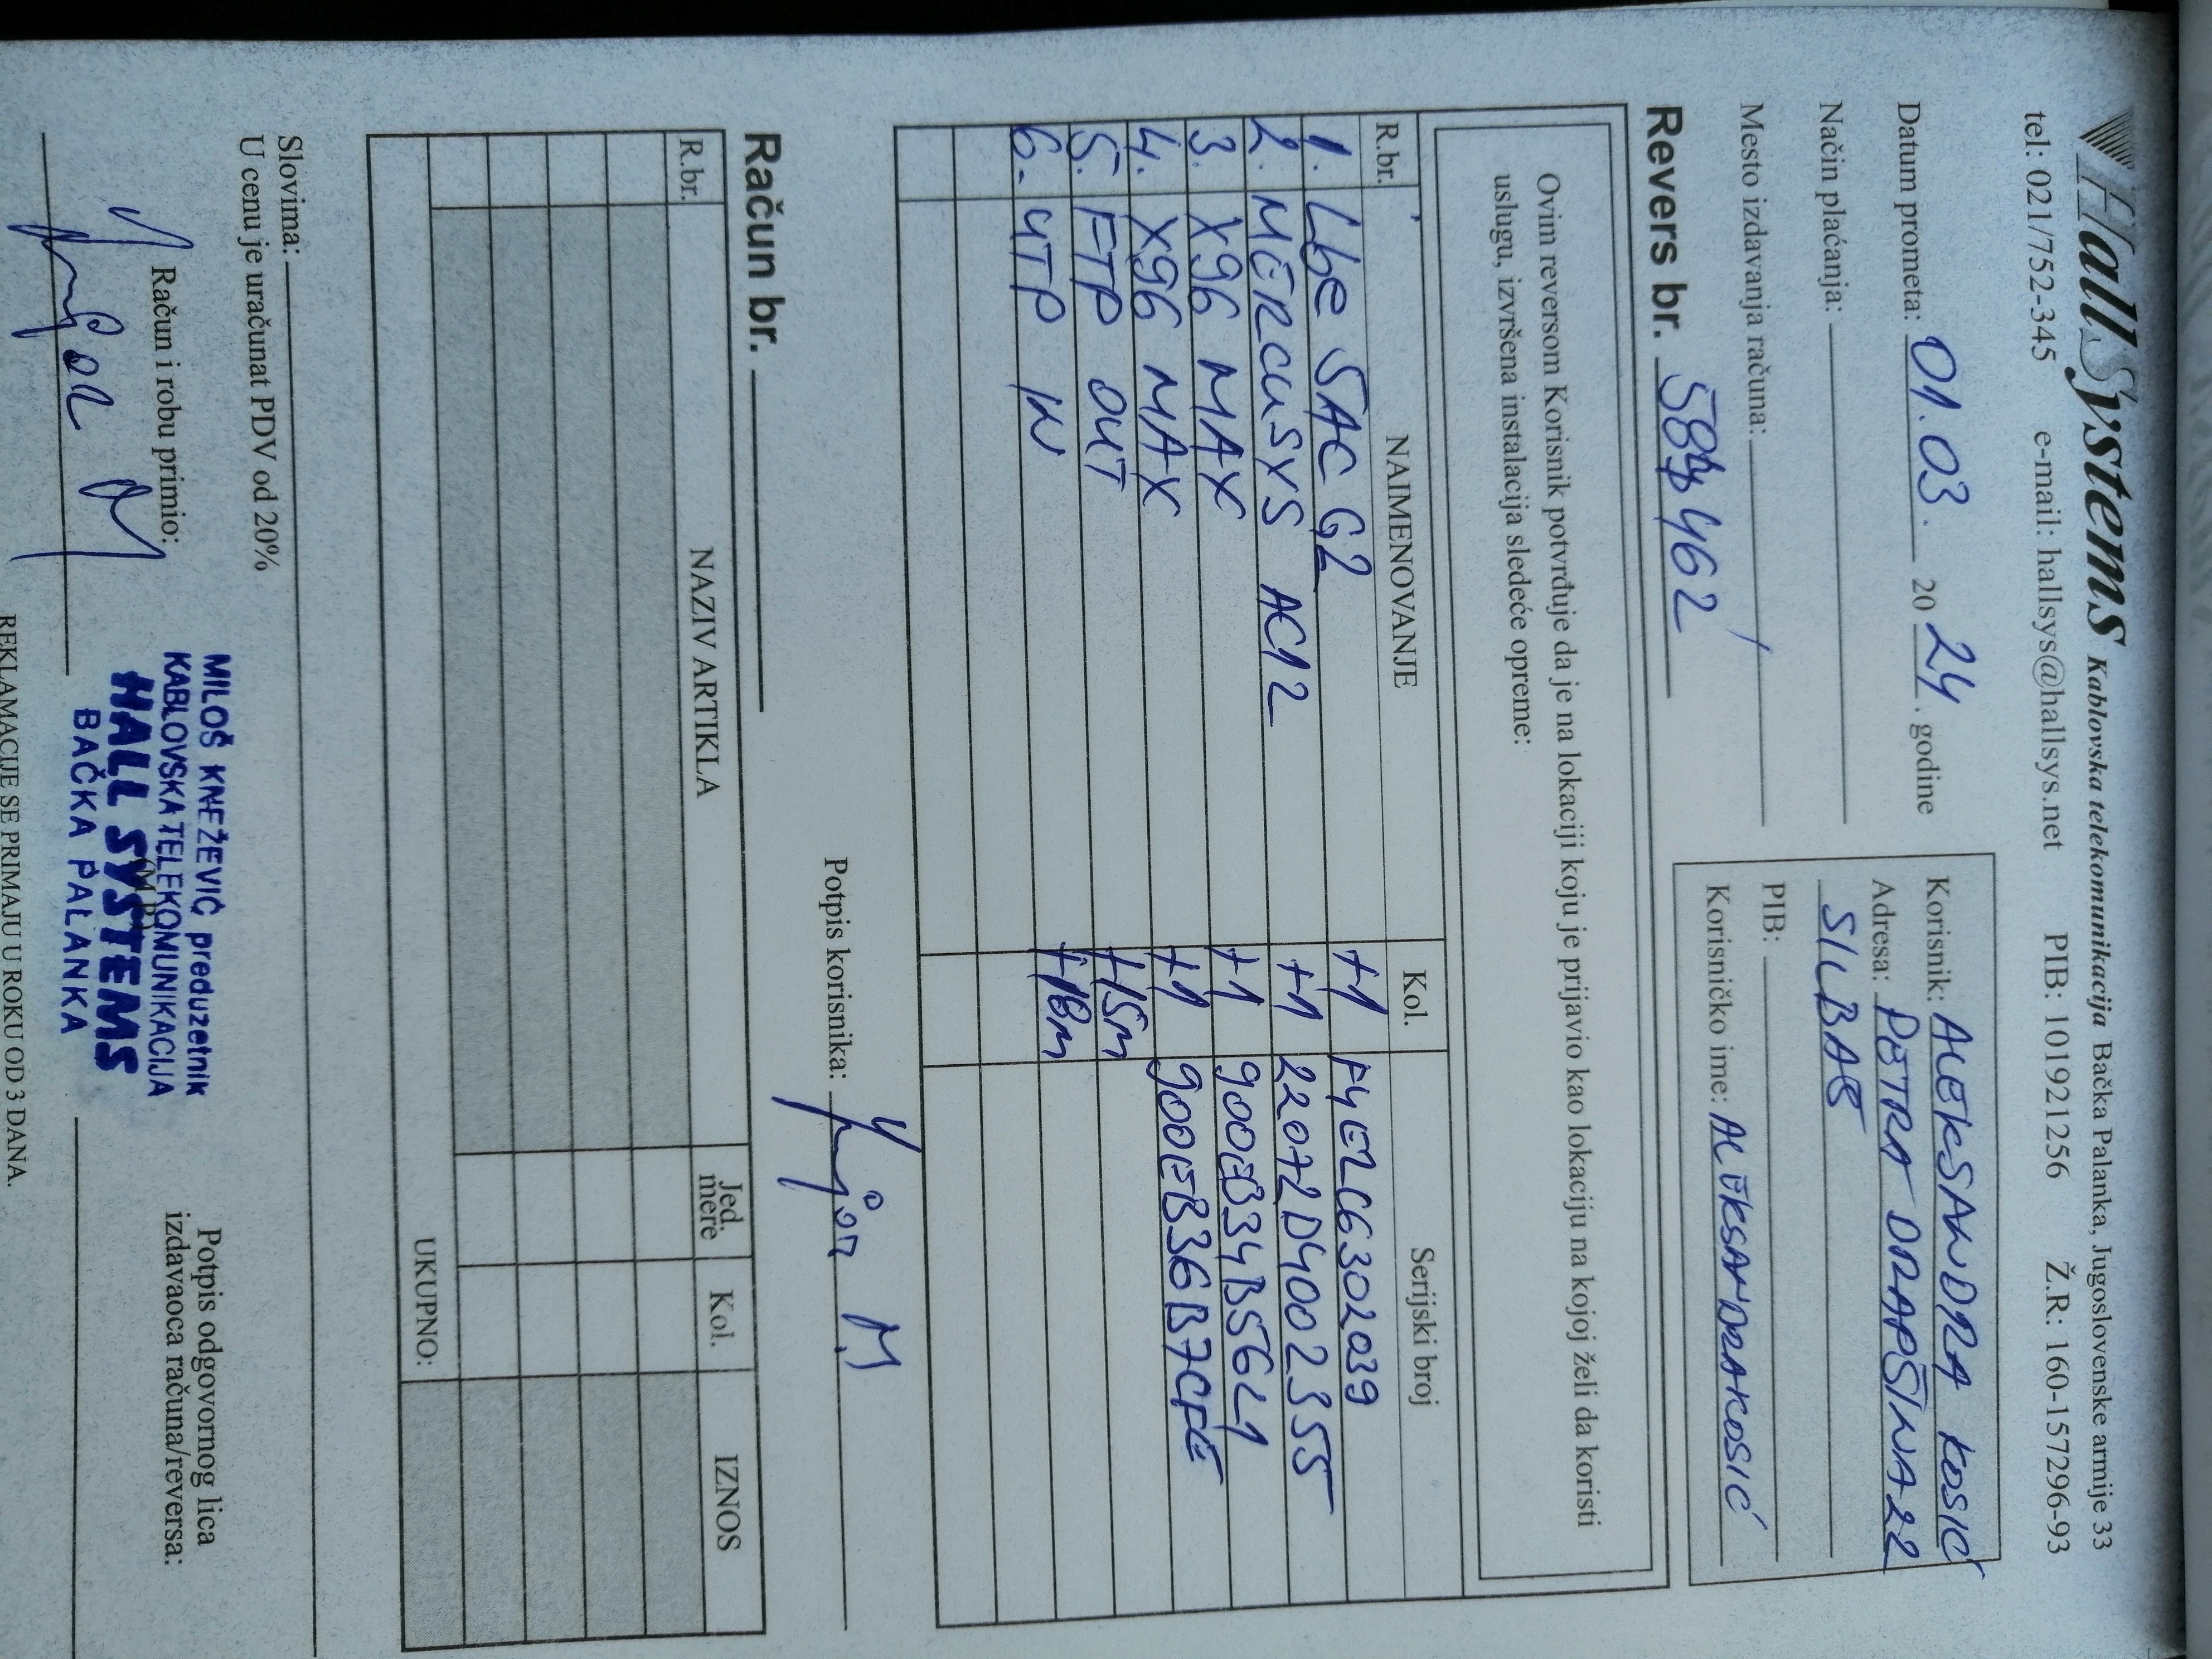 HallSystems Kablovska telekomunikacija Bačka Palanka, Jugoslovenske armije 33
tel: 021/752-345 e-mail: hallsys@hallsys.net PIB: 101921256 Ž.R: 160-157296-93
Datum prometa: 01.03. 2024. godine
Način plaćanja:
Mesto izdavanja računa:
Korisnik: ALEKSANDRA KOSIĆ
Adresa: PETRA DRAPŠINA 22
SILBAŠ
PIB:
Korisničko ime: ALEKSANDRAKOSIĆ
Revers br.
Ovim reversom Korisnik potvrđuje da je na lokaciji koju je prijavio kao lokaciju na kojoj želi da koristi
uslugu, izvršena instalacija sledeće opreme:
R.br. NAIMENOVANJE Kol. Serijski broj
1. Lbe 5AC G2 +1 F4E2C6302039
2. MERCUSYS AC12 +1 22072D4002355
3. X96 MAX +1 900EB34B5621
4. X96 MAX +1 900EB36B7CFE
5. FTP OUT +15m
6. UTP IN +18m
Potpis korisnika:
Račun br.
R.br. NAZIV ARTIKLA Jed. mere Kol. IZNOS
UKUPNO:
Slovima:
U cenu je uračunat PDV od 20%
Račun i robu primio:
MILOŠ KNEŽEVIĆ preduzetnik
KABLOVSKA TELEKOMUNIKACIJA
HALL SYSTEMS
BAČKA PALANKA
Potpis odgovornog lica
izdavaoca računa/reversa:
REKLAMACIJE SE PRIMAJU U ROKU OD 3 DANA.